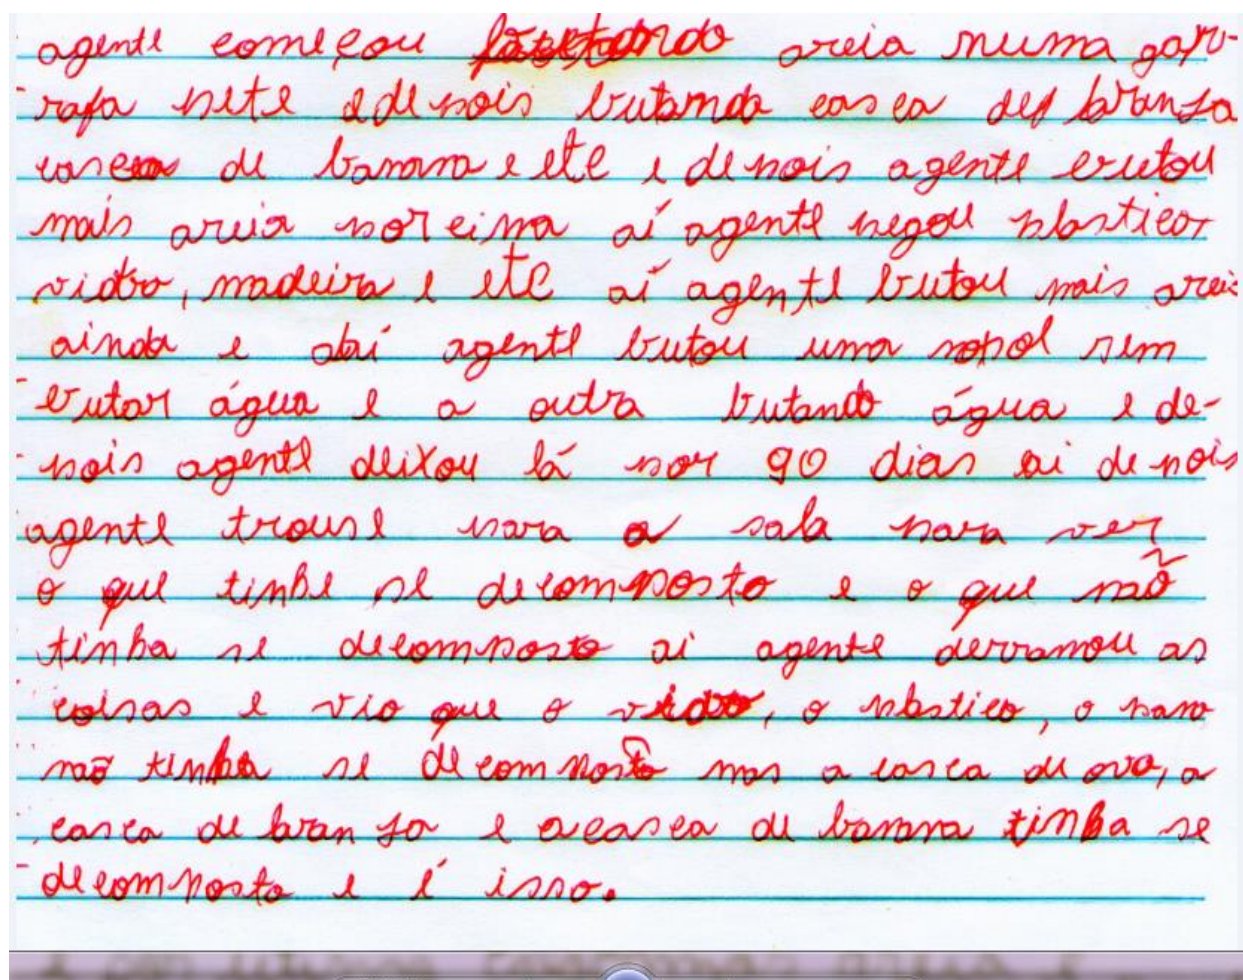 agente começou butando areia numa gar-
rafa pete e depois butando casca de laranja
casca de banana e etc e depois agente butou
mais areia por cima aí agente pegou plastico,
vidro, madeira e etc aí agente butou mais areia
ainda e daí agente butou uma no sol sem
butar água e a outra butando água e de-
pois agente deixou lá por 90 dias ai depois
agente trouse para a sala para ver
o que tinhe se decomposto e o que não
tinha se decomposto ai agente derramou as
coisas e vio que o vidro, o plastico, o pano
não tinha se decomposto mas a casca de ovo, a
casca de laranja e a casca de banana tinha se
decomposto e é isso.